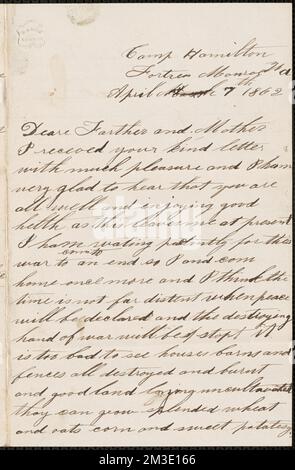 Camp Hamilton
Fortres Monroe Va
April 7 1862
Deare Farther and Mother
I receved your kind letter
with much pleasure and I ham
very glad to hear that you are
all well and injoying good
helth as this leaves me at present
I ham wating patently for this
war to come to an end so I and com
home once more and I think the
time is not far distent when peace
will be declared and this destroying
hand of war will be stopt it
is too bad to see houses barns and
fences all destroyed and burnt
and good land laying uncultavated
thay can grow splended wheat
and oats corn and sweet potatoes
alamy
Image ID: 2M3E166
www.alamy.com